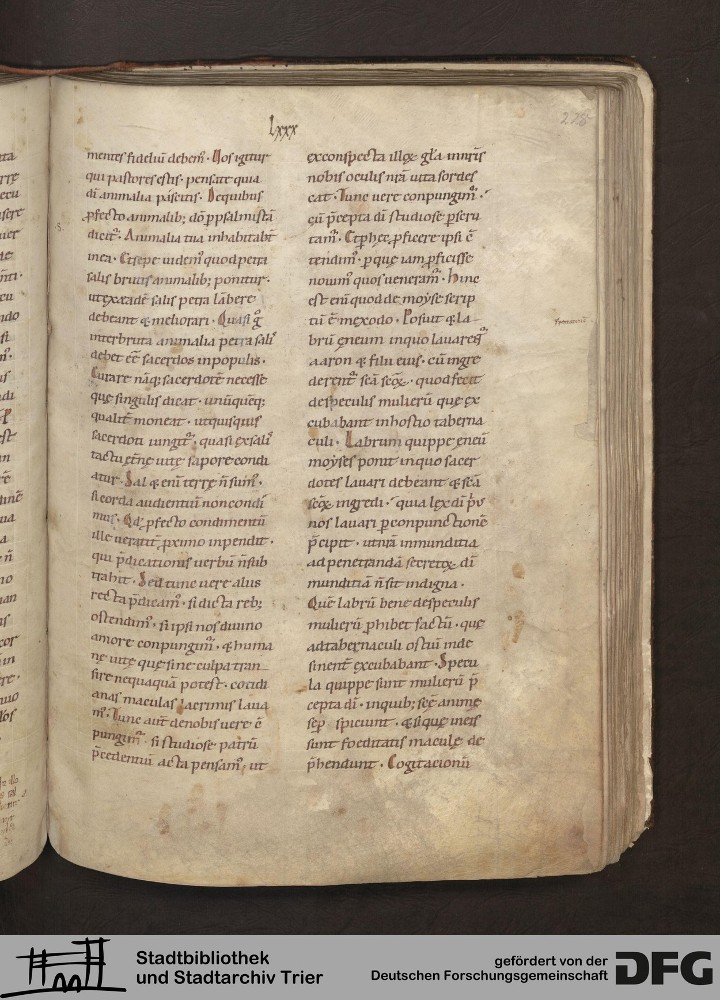 Lxxx
278
mentes fideliũ debem᷒ · Nos igitur
qui pastores estis · pensate quia
dĩ animalia pascitis · De quibus
ꝓfecto animalib; dõ ꝑ psalmistã
dicit᷑ · Animalia tua inhabitabt̃
in ea · Et sepe uidem᷒ quod petra
salis brutis animalib; ponitur ·
ut ex eadẽ salis petra lãbere
debeant & meliorari · Quasi g̊
inter bruta animalia petra sal̃
debet eẽ sacerdos in populis ·
Curare nãq; sacerdotẽ necesse
que singulis dicat · unũquẽq;
qualit̃ moneat · ut quisquis
sacerdoti iungit᷑ · quasi ex sal̃
tactu et̃ne uite sapore condi
atur · Sal & enĩ terre ñ sum᷒ ·
si corda audientiũ non condi
mus · Qd̃ ꝓfecto condimentũ
ille ueracit̃ ꝓximo inpendit ·
qui p̃dicationis uerbũ ñ sub
trahit · Sed tunc uere aliis
recta p̃dicam᷒ · si dicta reb;
ostendim᷒ · si ipsi nos diuino
amore conpungim᷒ · & huma
nę uite que sine culpa tran
sire nequaquã potest · cotidi
anas maculas lacrimis laua
m᷒ · Tunc aut̃ de nobis uere cõ
pungim᷒ · si studiose patrũ
p̃cedentiũ acta pensam᷒ · ut
ex conspecta illoꝝ gl̃a in nr̃is
nobis oculis nr̃a uita sordes
cat · Tunc uere conpungim᷒ ·
cũ p̃cepta dĩ studiose ꝑscru
tam᷒ · Et ꝑ hec ꝓficere ipsi cõ
tendim᷒ · ꝑ que iam ꝓficisse
nouim᷒ quos ueneram᷒ · Hinc
est enĩ quod de moyse scrip
tũ ẽ in exodo · Posuit & la
brũ eneum in quo lauarent᷑
aaron & filii eius · cũ ingre
derent᷑ scã scõꝝ · quod fecit
de speculis mulierũ que ex
cubabant in hostio taberna
culi · Labrum quippe eneũ
moyses ponit in quo sacer
dotes lauari debeant & scã
scõꝝ ingredi · quia lex dĩ p̃us
nos lauari ꝑ conpunctionẽ
p̃cipit · ut nr̃a inmunditia
ad penetrandã secretoꝝ dĩ
munditiã ñ sit indigna ·
Quẽ labrũ bene de speculis
mulierũ ꝑhibet factũ · que
ad tabernaculi ostiũ inde
sinent̃ excubabant · Specu
la quippe sunt mulierũ p̃
cepta dĩ · in quib; sc̃e anime
sep̃ spiciunt · & si que in eis
sunt foeditatis macule de
p̃hendunt · Cogitacionũ
Stadtbibliothek
und Stadtarchiv Trier
gefördert von der
Deutschen Forschungsgemeinschaft
DFG